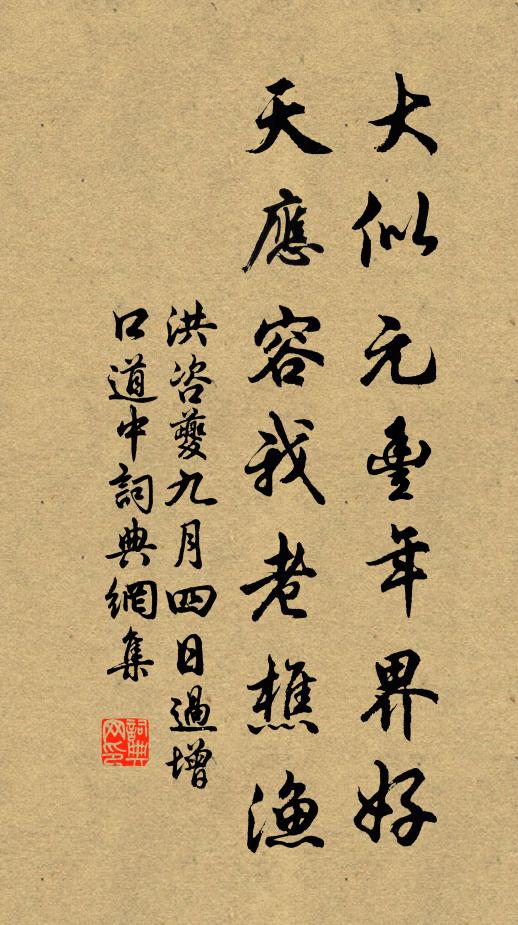 大似元豐年界好
天應容我老樵漁
洪咨夔九月四日過增
口道中詞典網集
詞典
网印